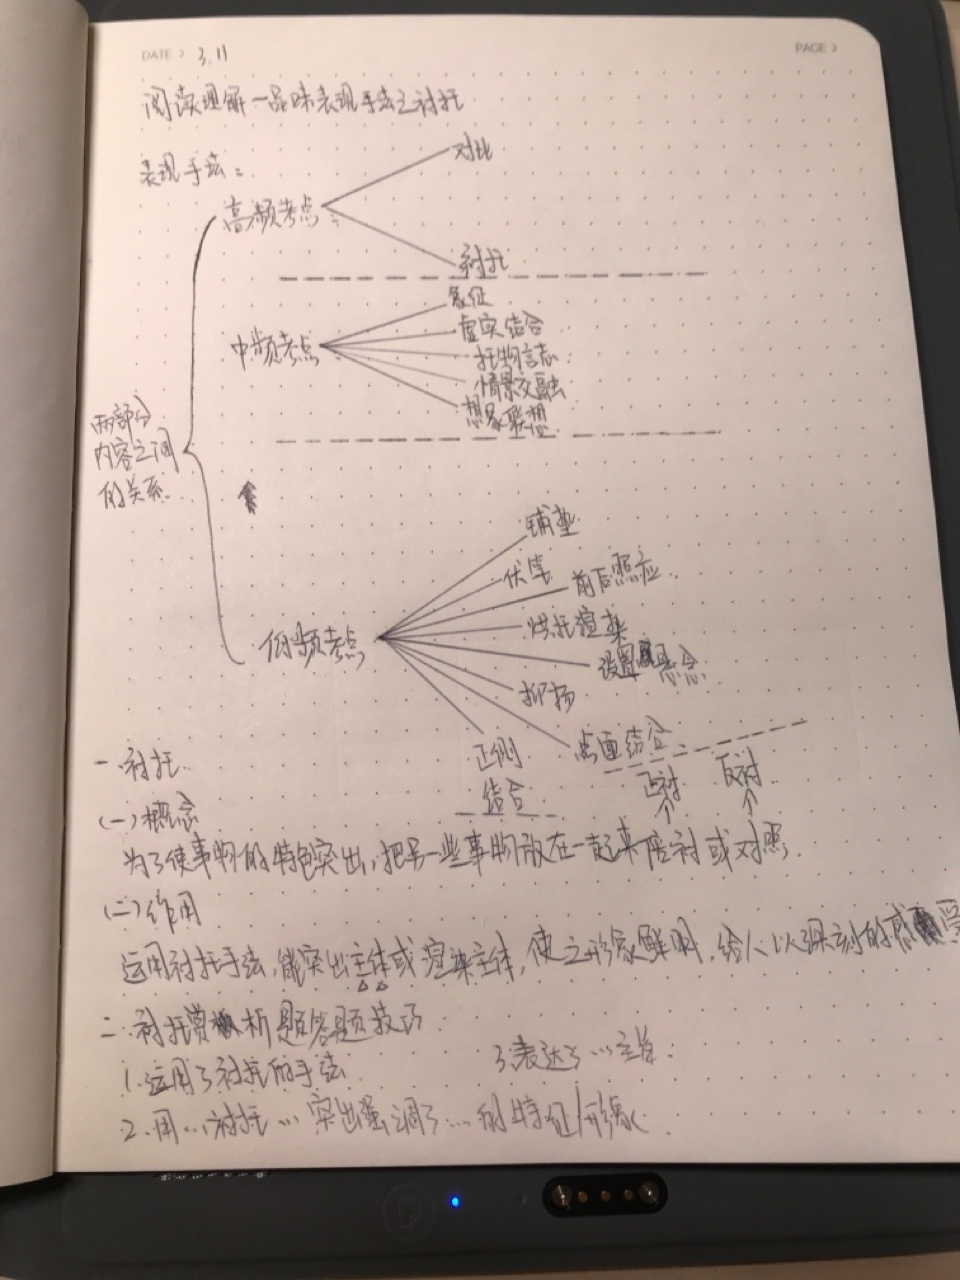 DATE 3.11
PAGE
阅读理解一品味表现手法之衬托
表现手法：
对比
高频考点
衬托
象征
虚实结合
中频考点
托物言志
情景交融
想象联想
两部分
内容之间
的关系
铺垫
伏笔
前后照应
烘托渲染
低频考点
设置悬念
抑扬
点面结合
正侧
结合
一、衬托
正衬
反衬
(一)概念
为了使事物的特色突出，把另一些事物放在一起来陪衬或对照.
(二)作用
运用衬托手法，能突出主体或渲染主体，使之形象鲜明，给人以深刻的感受
二.衬托赏析题答题技巧
1.运用了衬托的手法
3表达了…主旨.
2.用…衬托…突出强调了…的特征/形象.